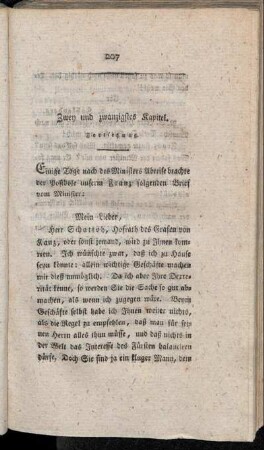 207
Zwey und zwanzigstes Kapitel.
Einige Tage nach des Ministers Abreise brachte
der Postbote unserm Franz folgenden Brief
vom Minister:
Mein Lieber,
Herr Schattoh, Hofrath des Grafen von
Kanz, oder sonst jemand, wird zu Ihnen kom-
men. Ich wünschte zwar, daß ich zu Hause
seyn könnte; allein wichtige Geschäfte machen
mir dieß unmöglich. Da ich aber Ihre Dexte-
rität kenne, so werden Sie die Sache so gut ab-
machen, als wenn ich zugegen wäre. Beym
Geschäfte selbst habe ich Ihnen weiter nichts,
als die Regel zu empfehlen, daß man für sei-
nen Herrn alles thun müsse, und daß nichts in
der Welt das Interesse des Fürsten balanciren
dürfe. Doch Sie sind ja ein kluger Mann, dem